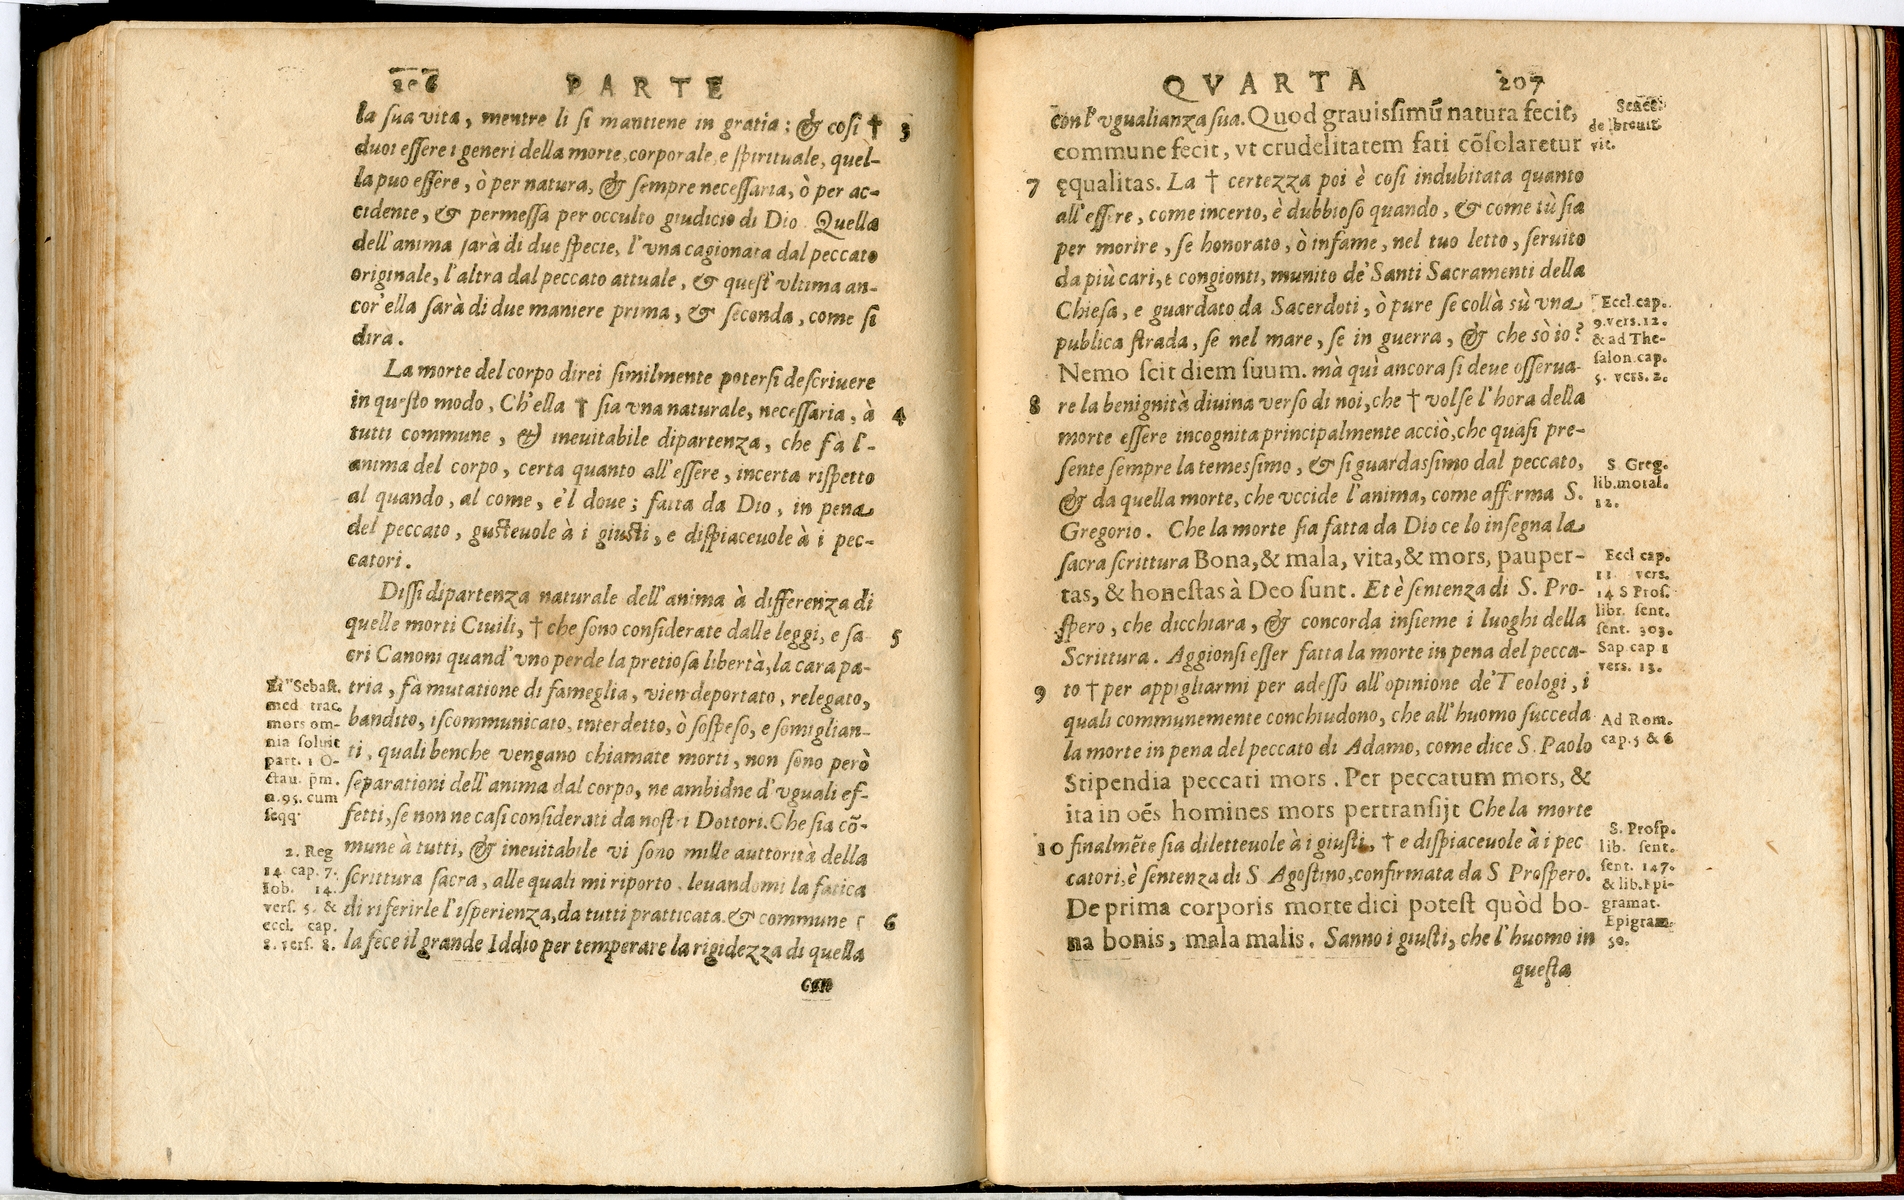 206 PARTE
la sua vita, mentre li si mantiene in gratia; & cosi † 3
duoi eſſere i generi della morte, corporale, e ſpirituale, quel-
la puo eſſere, ò per natura, & ſempre neceſſaria, ò per ac-
cidente, & permeſſa per occulto giudicio di Dio. Quella
dell'anima ſarà di due ſpecie, l'vna cagionata dal peccato
originale, l'altra dal peccato attuale, & queſt'vltima an-
cor'ella ſarà di due maniere prima, & ſeconda, come ſi
dirà.
La morte del corpo direi ſimilmente poterſi deſcriuere
in queſto modo, Ch'ella † ſia vna naturale, neceſſaria, à 4
tutti commune, & ineuitabile dipartenza, che fà l'-
anima del corpo, certa quanto all'eſſere, incerta riſpetto
al quando, al come, e'l doue; fatta da Dio, in pena
del peccato, guſteuole à i giuſti, e diſpiaceuole à i pec-
catori.
Diſſi dipartenza naturale dell'anima à differenza di
quelle morti Ciuili, † che ſono conſiderate dalle leggi, e ſa- 5
cri Canoni quand'vno perde la pretioſa libertà, la cara pa-
tria, fà mutatione di fameglia, vien deportato, relegato,
bandito, iſcommunicato, interdetto, ò ſoſpeſo, e ſomiglian-
ti, quali benche vengano chiamate morti, non ſono però
ſeparationi dell'anima dal corpo, ne ambidne d'vguali ef-
fetti, ſe non ne caſi conſiderati da noſtri Dottori. Che ſia cõ-
mune à tutti, & ineuitabile vi ſono mille auttorità della
ſcrittura ſacra, alle quali mi riporto, leuandomi la fatica
di riferirle l'iſperienza, da tutti pratticata. & commune 6
la fece il grande Iddio per temperare la rigidezza di quella
con
Sebaſt.
med trac.
mors om-
nia ſoluit
part. 1 O-
ctau. p̃m.
n. 95. cum
ſeqq.
2. Reg
14. cap. 7.
Iob. 14.
verſ. 5. &
eccl. cap.
8. verſ. 8.
QVARTA 207
con l'vgualianza ſua. Quod grauiſſimũ natura fecit,
commune fecit, vt crudelitatem fati cõſolaretur
7 ęqualitas. La † certezza poi è coſi indubitata quanto
all'eſſere, come incerto, è dubbioſo quando, & come tù ſia
per morire, ſe honorato, ò infame, nel tuo letto, ſeruito
da più cari, e congionti, munito de' Santi Sacramenti della
Chieſa, e guardato da Sacerdoti, ò pure ſe collà sù vna
publica ſtrada, ſe nel mare, ſe in guerra, & che sò io?
Nemo ſcit diem ſuum. mà quì ancora ſi deue oſſerua-
8 re la benignità diuina verſo di noi, che † volſe l'hora della
morte eſſere incognita principalmente acciò, che quaſi pre-
ſente ſempre la temeſſimo, & ſi guardaſſimo dal peccato,
& da quella morte, che vccide l'anima, come afferma S.
Gregorio. Che la morte ſia fatta da Dio ce lo inſegna la
ſacra ſcrittura Bona, & mala, vita, & mors, pauper-
tas, & honeſtas à Deo ſunt. Et è ſentenza di S. Pro-
ſpero, che dicchiara, & concorda inſieme i luoghi della
Scrittura. Aggionſi eſſer fatta la morte in pena del pecca-
9 to † per appigliarmi per adeſſo all'opinione de' Teologi, i
quali communemente conchiudono, che all'huomo ſucceda
la morte in pena del peccato di Adamo, come dice S. Paolo
Stipendia peccati mors. Per peccatum mors, &
ita in oẽs homines mors pertranſijt Che la morte
10 finalmẽte ſia diletteuole à i giuſti, † e diſpiaceuole à i pec
catori, è ſentenza di S. Agoſtino, confirmata da S. Proſpero.
De prima corporis morte dici poteſt quòd bo-
na bonis, mala malis. Sanno i giuſti, che l'huomo in
queſta
Senec.
de breuit.
vit.
Eccl. cap.
9. vers. 12.
& ad The-
ſalon. cap.
5. vers. 2.
S. Greg.
lib. moral.
12.
Eccl cap.
11 vers.
14 S Proſ.
libr. ſent.
ſent. 303.
Sap cap 1
vers. 13.
Ad Rom.
cap. 5 & 6
S. Proſp.
lib. ſent.
ſent. 147.
& lib. Epi-
gramat.
Epigram.
50.